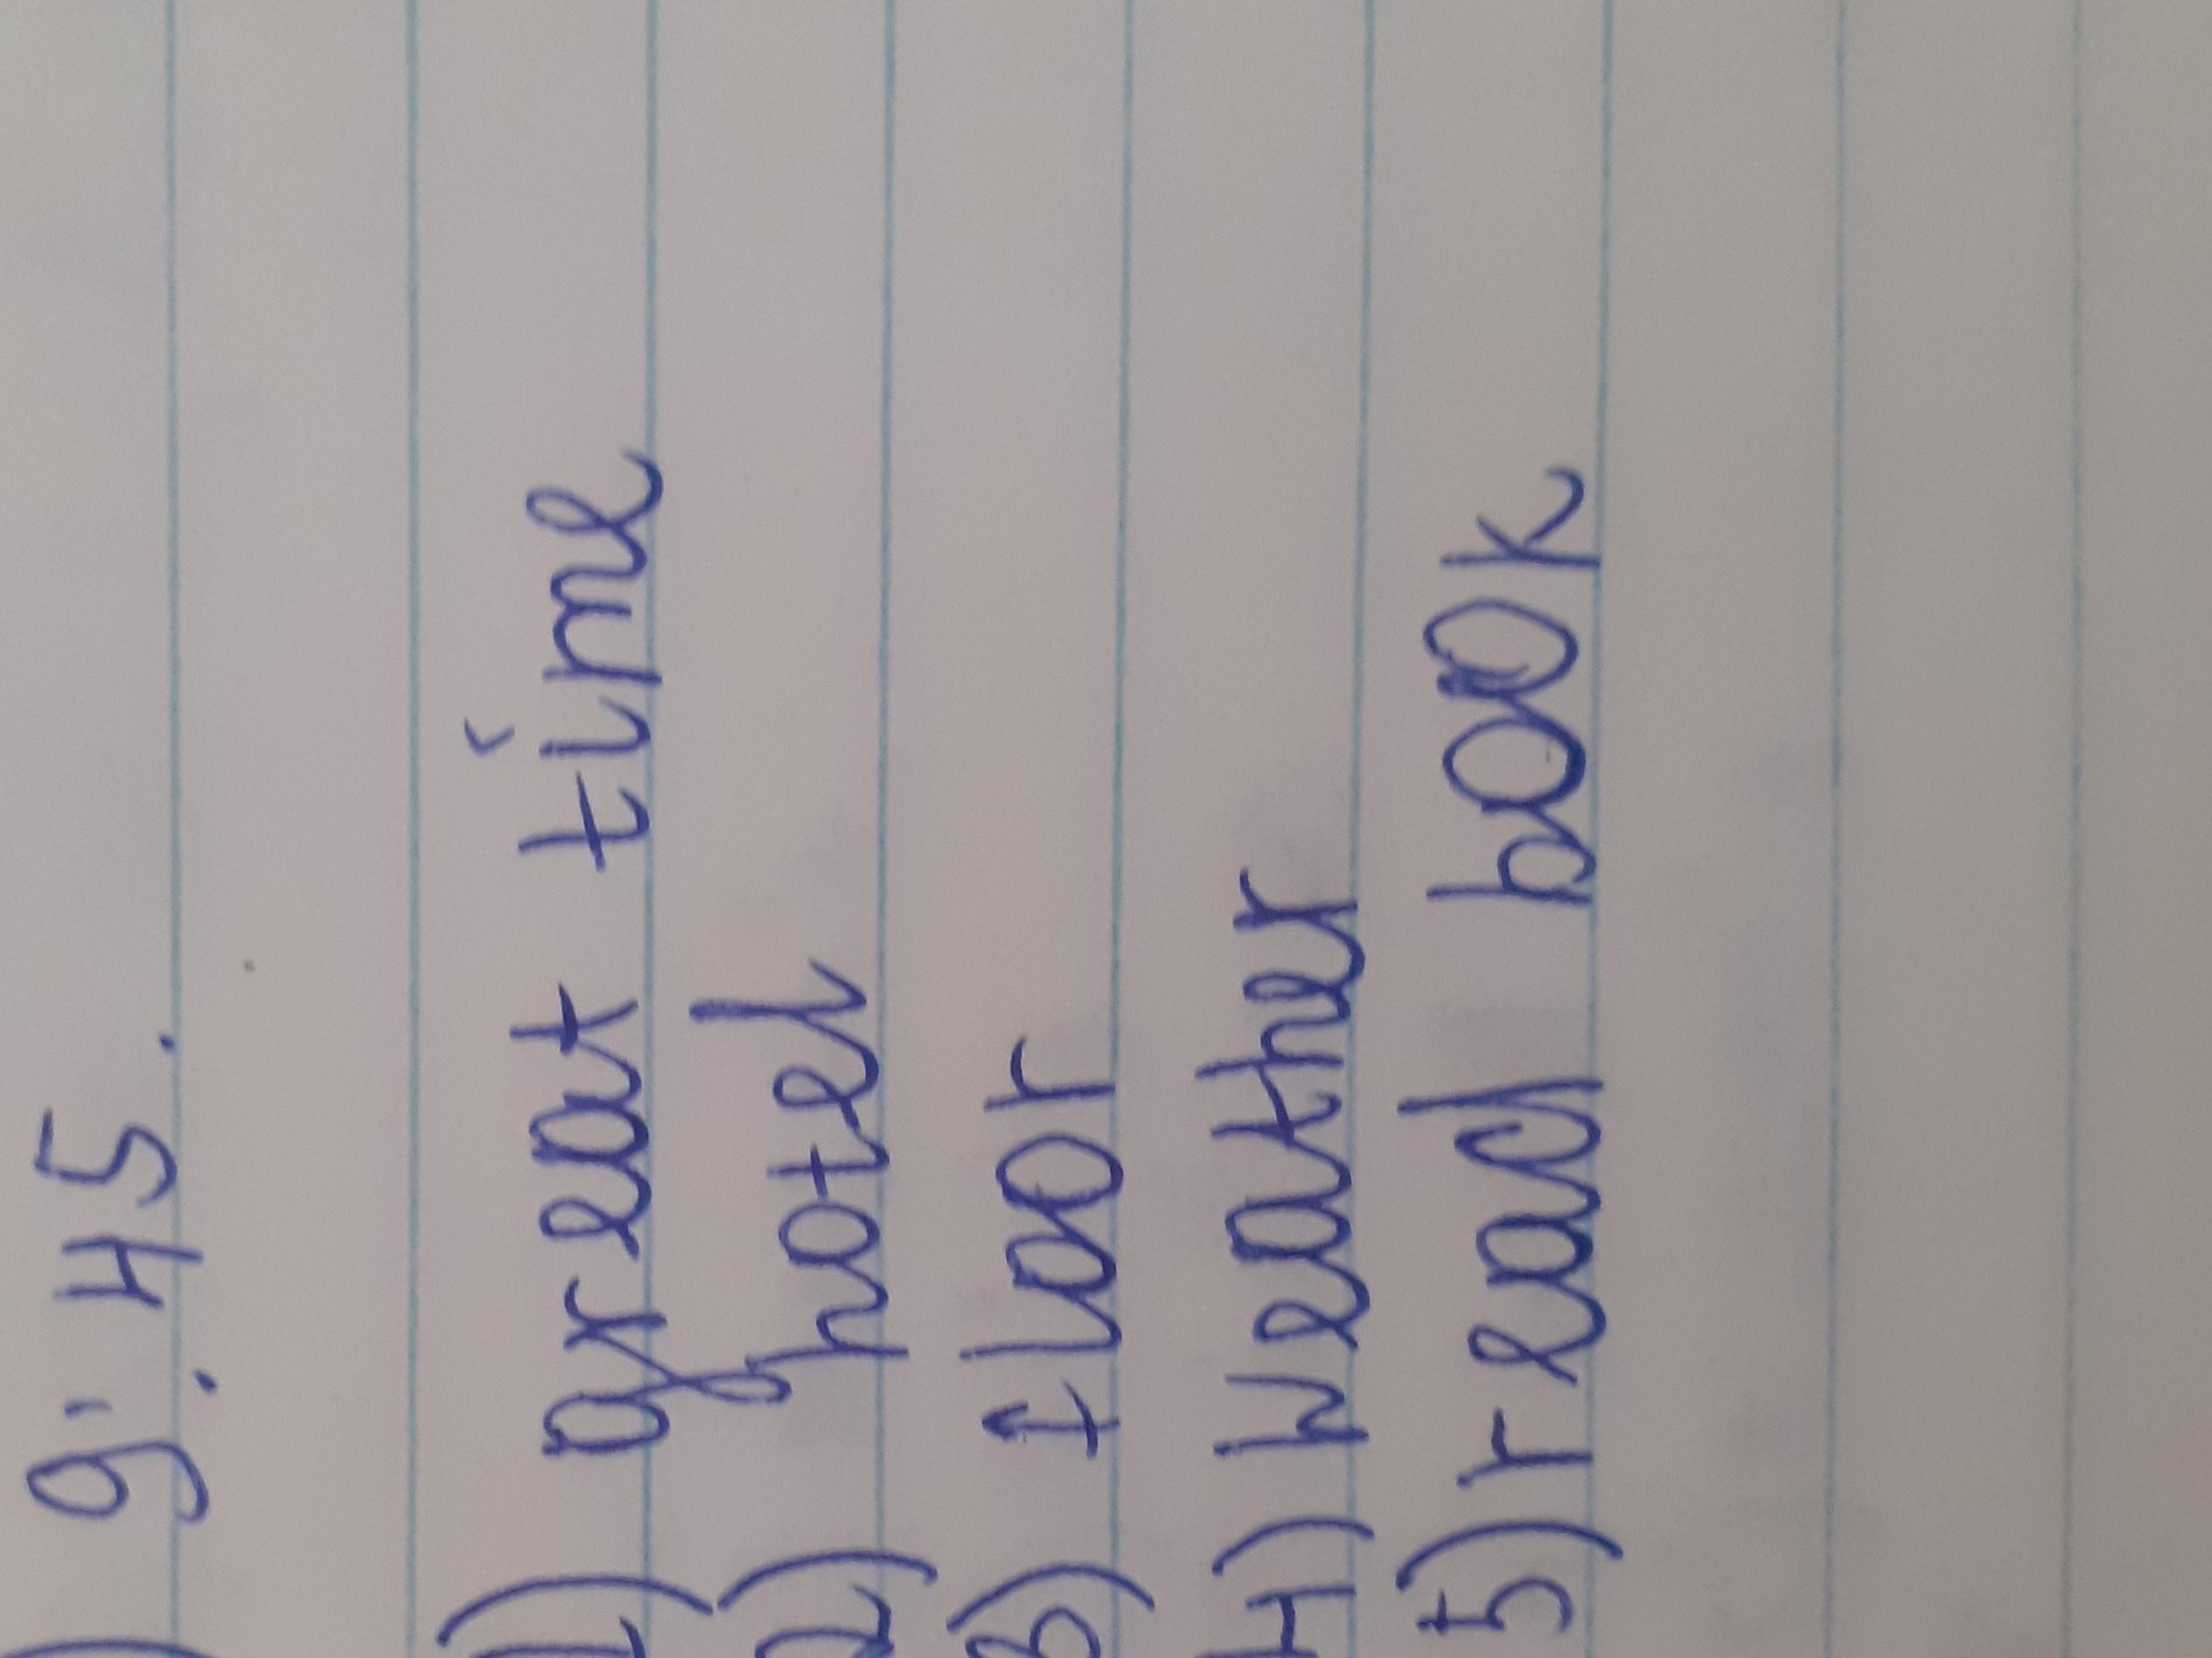 ) 9: 45.
1) great time
2) hotel
3) floor
4) weather
5) read book